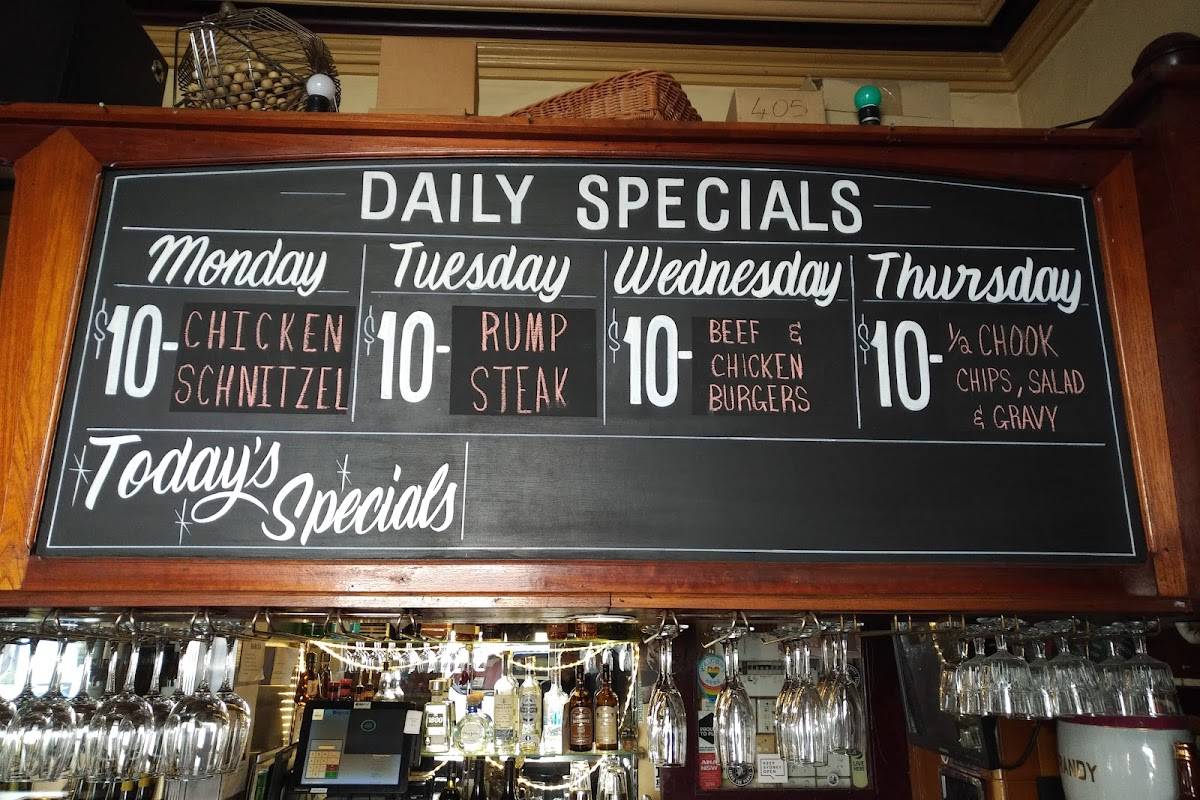 405
DAILY SPECIALS
Monday
$10-
CHICKEN
SCHNITZEL
Tuesday
$10-
RUMP
STEAK
Wednesday
$10-
BEEF &
CHICKEN
BURGERS
Thursday
$10-
½ CHOOK
CHIPS, SALAD
& GRAVY
Today's
Specials
1800
KEEP
SYDNEY
OPEN
AHA
NSW
ANDY